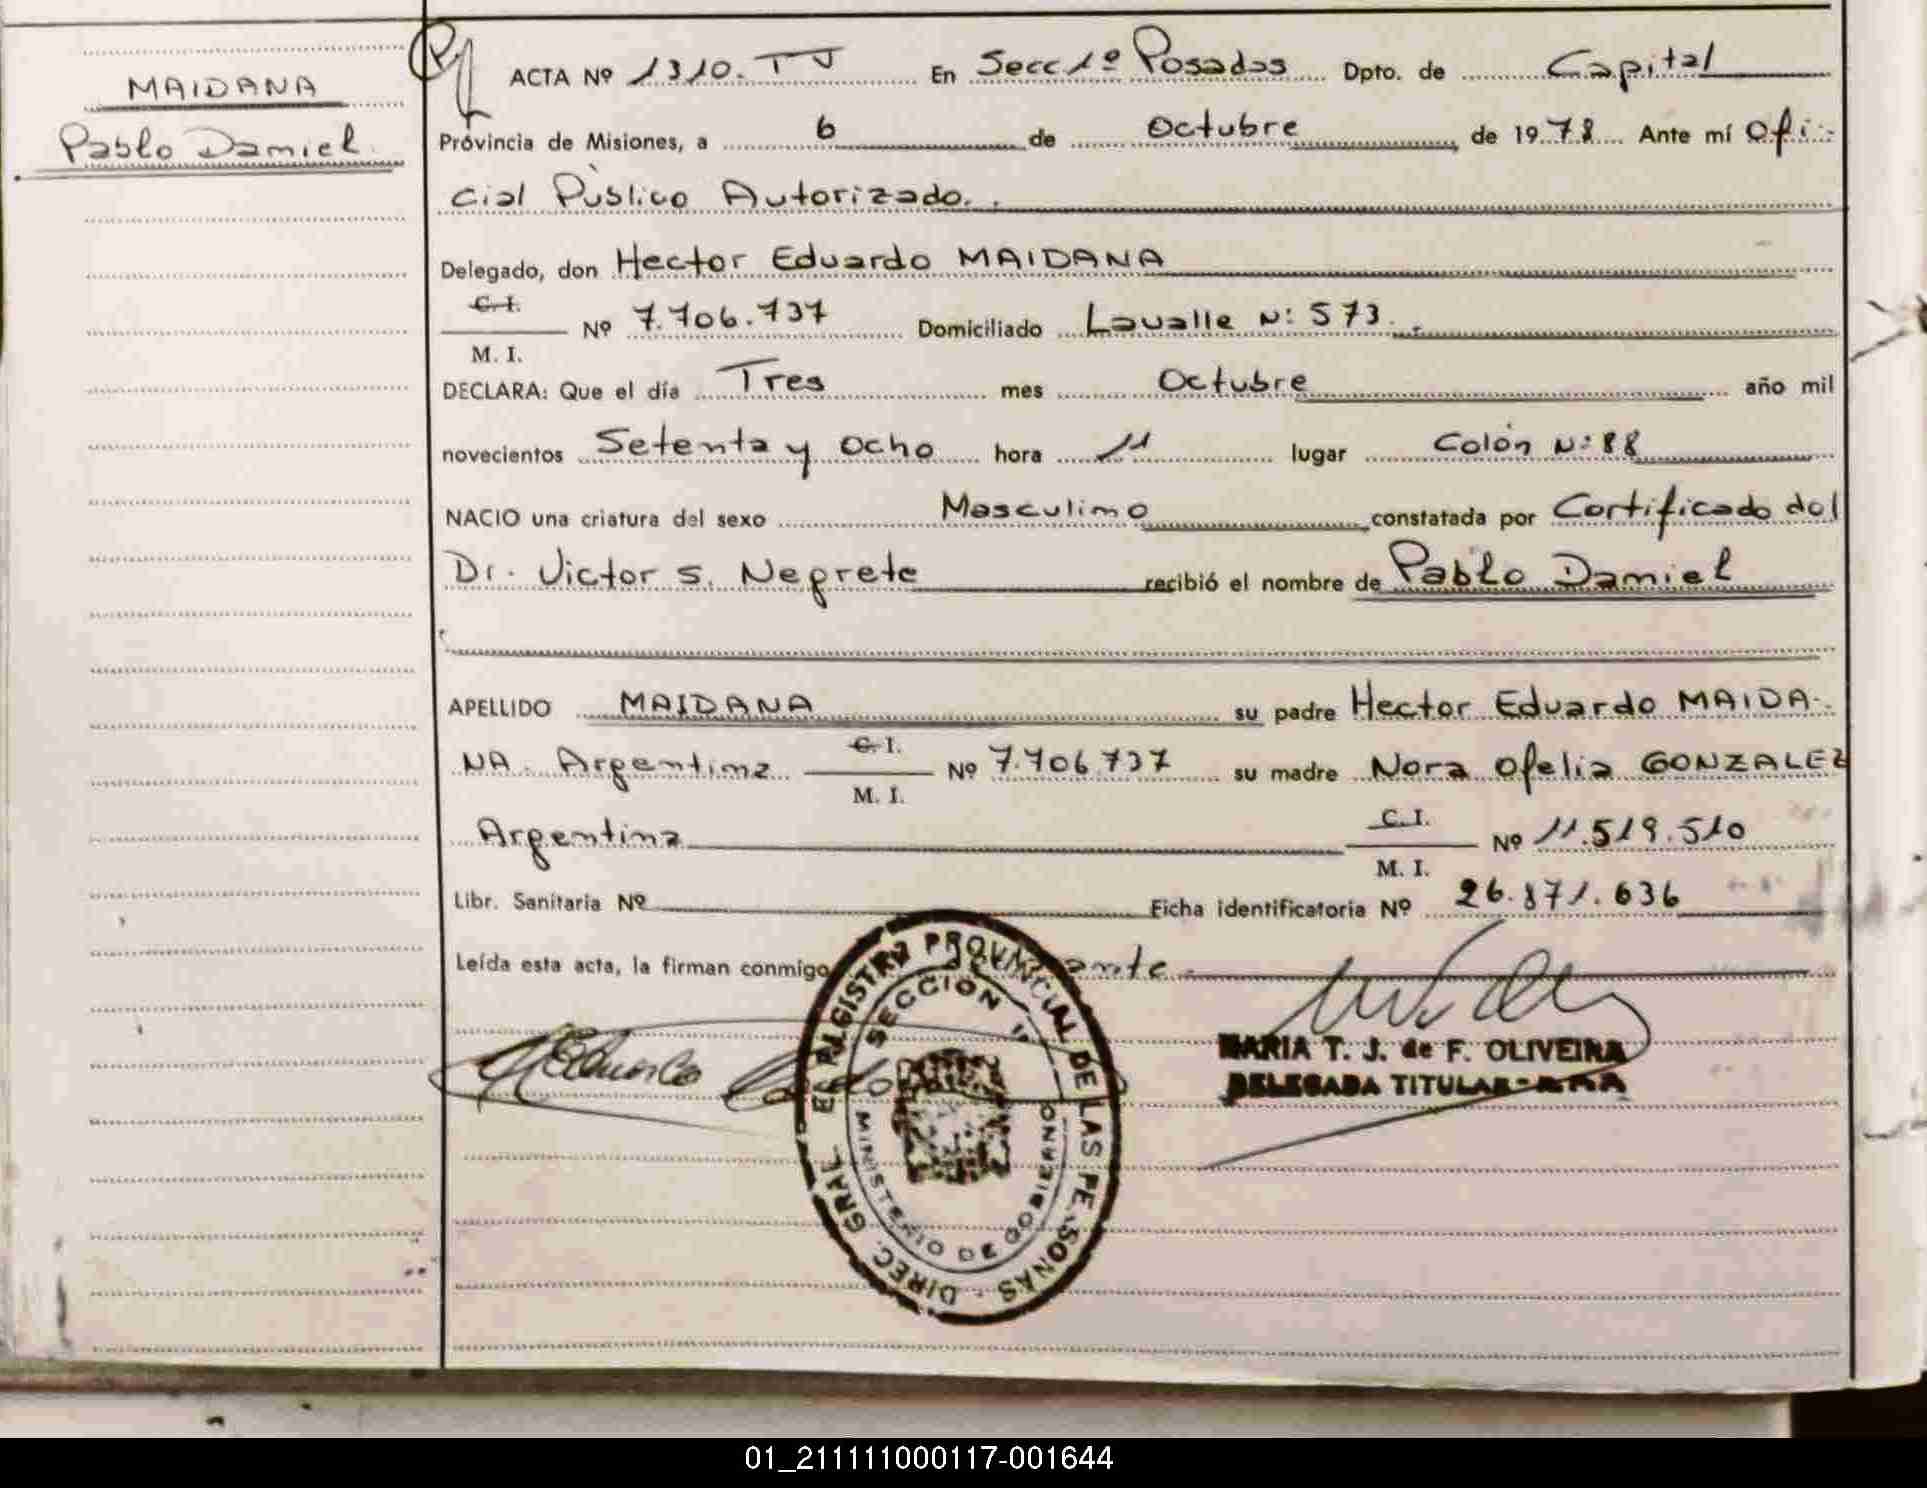 MAIDANA
Pablo Daniel
ACTA Nº 1310. TJ En Secc 1º Posadas Dpto. de Capital
Provincia de Misiones, a 6 de Octubre de 1978 Ante mí Ofi-
cial Público Autorizado.
Delegado, don Hector Eduardo MAIDANA
C. I.
M. I. Nº 7.706.737 Domiciliado Lavalle N: 573.
DECLARA: Que el día Tres mes Octubre año mil
novecientos Setenta y Ocho hora 11 lugar Colón N: 88
NACIO una criatura del sexo Masculino constatada por Certificado del
Dr. Victor S. Negrete recibió el nombre de Pablo Daniel
APELLIDO MAIDANA su padre Hector Eduardo MAIDA-
NA. Argentina C. I. M. I. Nº 7.706.737 su madre Nora Ofelia GONZALEZ
Argentina C. I. M. I. Nº 11.519.510
Libr. Sanitaria Nº Ficha identificatoria Nº 26.871.636
Leída esta acta, la firman conmigo
MARIA T. J. de F. OLIVEIRA
DELEGADA TITULAR
DIREC. GRAL. REGISTRO PROVINCIAL DE LAS PERSONAS
SECCION 1
MINISTERIO DE GOBIERNO
01_211111000117-001644